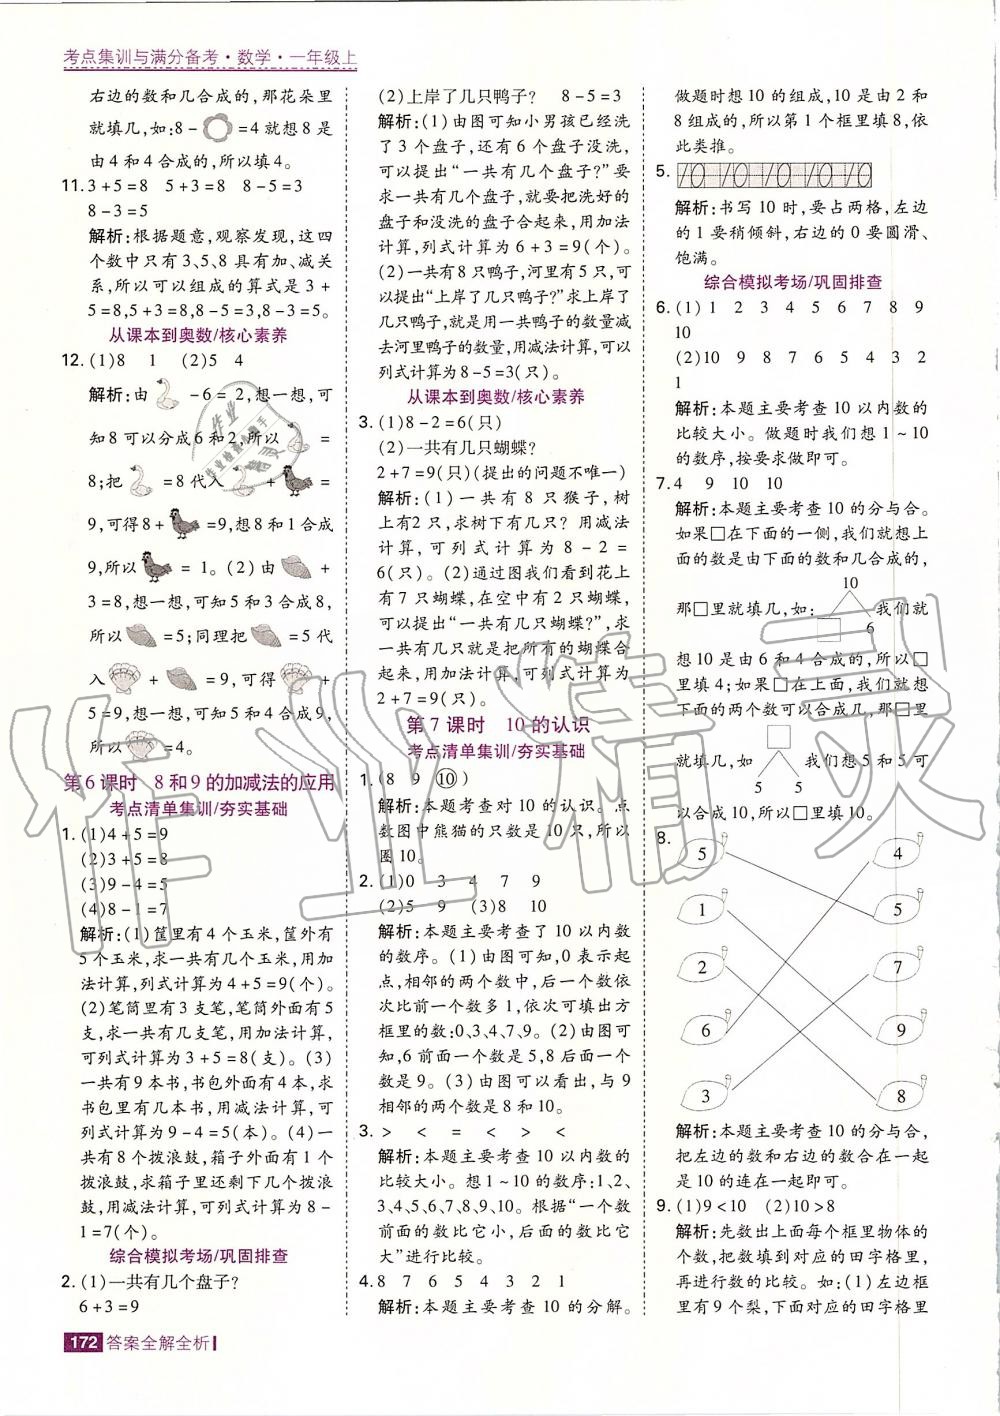 考点集训与满分备考·数学·一年级上
右边的数和几合成的,那花朵里
就填几,如:8- =4就想8是
由4和4合成的,所以填4。
11.3+5=8 5+3=8 8-5=3
8-3=5
解析:根据题意,观察发现,这四
个数中只有3、5、8具有加、减关
系,所以可以组成的算式是3+
5=8,5+3=8,8-5=3,8-3=5。
从课本到奥数/核心素养
12.(1)8 1 (2)5 4
解析:由 -6=2,想一想,可
知8可以分成6和2,所以 =
8;把 =8代入 + =
9,可得8+ =9,想8和1合成
9,所以 =1。(2)由 +
3=8,想一想,可知5和3合成8,
所以 =5;同理把 =5代
入 + =9,可得 +
5=9,想一想,可知5和4合成9,
所以 =4。
第6课时 8和9的加减法的应用
考点清单集训/夯实基础
1.(1)4+5=9
(2)3+5=8
(3)9-4=5
(4)8-1=7
解析:(1)筐里有4个玉米,筐外有
5个玉米,求一共有几个玉米,用加
法计算,列式计算为4+5=9(个)。
(2)笔筒里有3支笔,笔筒外面有5
支,求一共有几支笔,用加法计算,
可列式计算为3+5=8(支)。(3)
一共有9本书,书包外面有4本,求
书包里有几本书,用减法计算,可
列式计算为9-4=5(本)。(4)一
共有8个拨浪鼓,箱子外面有1个
拨浪鼓,求箱子里还剩下几个拨浪
鼓,用减法计算,可列式计算为8-
1=7(个)。
综合模拟考场/巩固排查
2.(1)一共有几个盘子?
6+3=9
172 答案全解全析
(2)上岸了几只鸭子? 8-5=3
解析:(1)由图可知小男孩已经洗
了3个盘子,还有6个盘子没洗,
可以提出“一共有几个盘子?”要
求一共有几个盘子,就要把洗好的
盘子和没洗的盘子合起来,用加法
计算,列式计算为6+3=9(个)。
(2)一共有8只鸭子,河里有5只,可
以提出“上岸了几只鸭子?”求上岸了
几只鸭子,就是用一共鸭子的数量减
去河里鸭子的数量,用减法计算,可以
列式计算为8-5=3(只)。
从课本到奥数/核心素养
3.(1)8-2=6(只)
(2)一共有几只蝴蝶?
2+7=9(只)(提出的问题不唯一)
解析:(1)一共有8只猴子,树
上有2只,求树下有几只?用减法
计算,可列式计算为8-2=
6(只)。(2)通过图我们看到花上
有7只蝴蝶,在空中有2只蝴蝶,
可以提出“一共有几只蝴蝶?”求
一共有几只就是把所有的蝴蝶合
起来,用加法计算,可列式计算为
2+7=9(只)。
第7课时 10的认识
考点清单集训/夯实基础
1.(8 9 ⑩)
解析:本题考查对10的认识。点
数图中熊猫的只数是10只,所以
圈10。
2.(1)0 3 4 7 9
(2)5 9 (3)8 10
解析:本题主要考查了10以内数
的数序。(1)由图可知,0表示起
点,相邻的两个数中,后一个数依
次比前一个数多1,依次可填出方
框里的数:0、3、4、7、9。(2)由图可
知,6前面一个数是5,8后面一个
数是9。(3)由图可以看出,与9
相邻的两个数是8和10。
3.> < = < > <
解析:本题主要考查10以内数的
比较大小。想1~10的数序:1、2、
3、4、5、6、7、8、9、10。根据“一个数
前面的数比它小,后面的数比它
大”进行比较。
4.8 7 6 5 4 3 2 1
解析:本题主要考查10的分解。
做题时想10的组成,10是由2和
8组成的,所以第1个框里填8,依
此类推。
5.10 10 10 10 10
解析:书写10时,要占两格,左边
的1要稍倾斜,右边的0要圆滑、
饱满。
综合模拟考场/巩固排查
6.(1)1 2 3 4 5 6 7 8 9
10
(2)10 9 8 7 6 5 4 3 2
1
解析:本题主要考查10以内数的
比较大小。做题时我们想1~10
的数序,按要求做即可。
7.4 9 10 10
解析:本题主要考查10的分与合。
如果□在下面的一侧,我们就想上
面的数是由下面的数和几合成的,
10
那□里就填几,如: 我们就
□ 6
想10是由6和4合成的,所以□
里填4;如果□在上面,我们就想
下面的两个数可以合成几,那□里
□
就填几,如 我们想5和5可
5 5
以合成10,所以□里填10。
8.
5 4
1 5
2 7
6 9
3 8
解析:本题主要考查10的分与合,
把左边的数和右边的数合在一起
是10的连在一起即可。
9.(1)9<10 (2)10>8
解析:先数出上面每个框里物体的
个数,把数填到对应的田字格里,
再进行数的比较。如:(1)左边框
里有9个梨,下面对应的田字格里
作业精灵